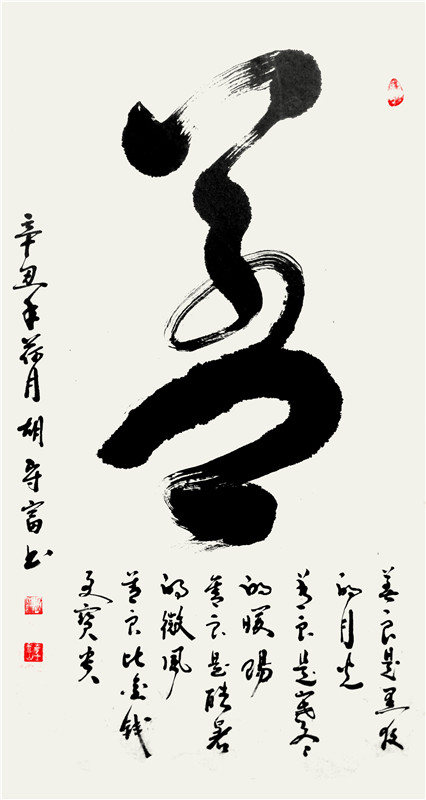 善
善良是黑夜
的月光
善良是严冬
的暖陽
善良是酷暑
的微风
善良比金钱
更寶贵
辛丑年荷月胡寿富书